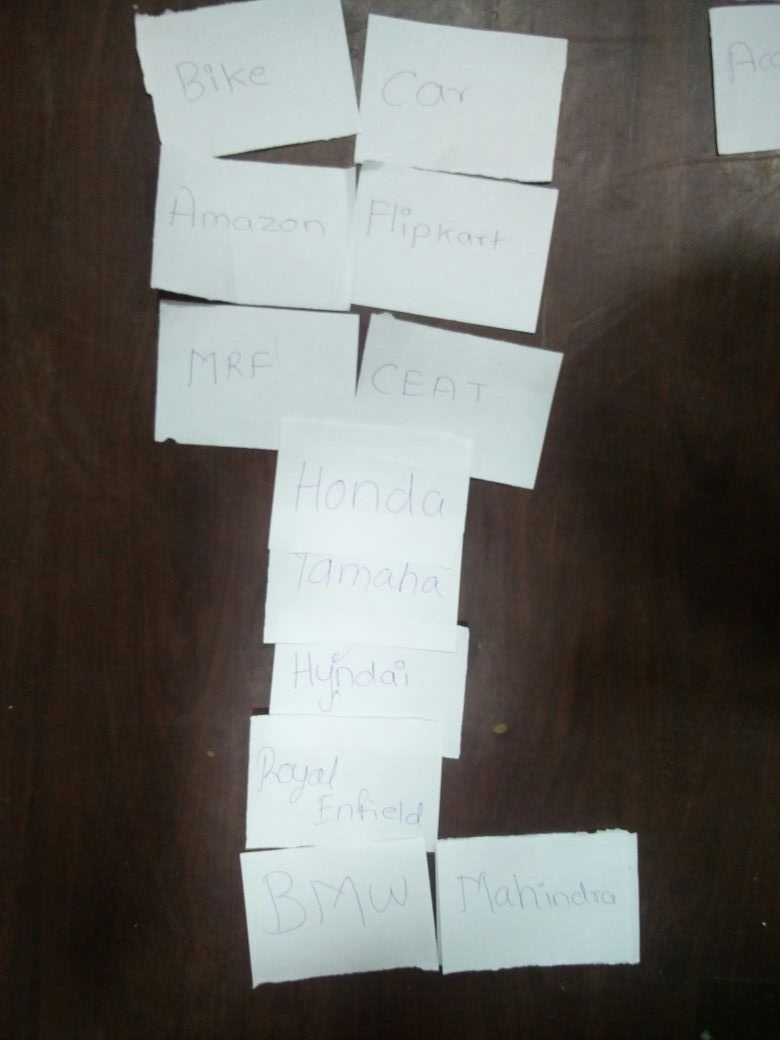 Bike
Car
Acc
Amazon
Flipkart
MRF
CEAT
Honda
Yamaha
Hyndai
Royal
Enfield
BMW
Mahindra